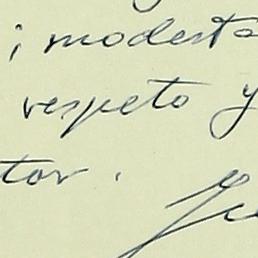 ; modesta
respeto y
tor.